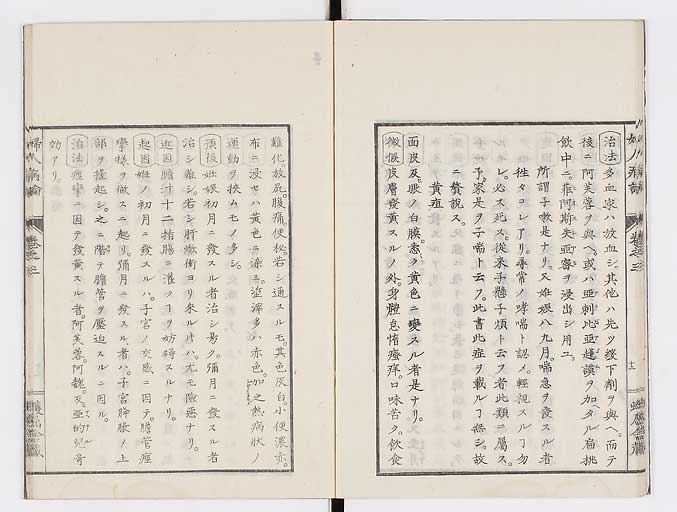 治法 多血家ハ放血シ。其他ハ先ツ緩下劑ヲ與ヘ。而テ
後ニ阿芙蓉ヲ與ヘ。或ハ亞刺比亞護謨ヲ加タル扁桃
飲中ニ。菲阿斯失亞謨ヲ浸出シ用ユ。
所謂子嗽是ナリ。又姙娠八九月。喘息ヲ發スル者
往々コレアリ。尋常ノ哮喘ト認ノ。輕視スルヿ勿
レ。必ス死ス。從來子懸子煩ト云フ者此類ニ屬ス。
予家是ヲ子喘ト云フ。此書此症ヲ載ルヿ無シ。故
ニ贅說ス。
黃疸
面良及。眼ノ白膜。悉ク黃色ニ變スル者是ナリ。
徴候 皮膚發黃スルノ外。身體怠惰瘙痒。口味苦ク。飲食
婦人病論
卷之三
十二
難化。放屁。腹痛。便秘。若シ通スルモ。其色灰白。小便濃赤。
布ニ浸セハ黃色ニ染ミ。涎滓多ハ赤色。加之熱病狀ノ
運動ヲ挾ムモノ多シ。
預後 姙娠初月ニ發スル者治シ易ク。彌月ニ發スル者
治シ難シ。若シ肝衝衝ヨリ來ル片ハ。尤モ險惡ナリ。
近因 膽汁十二指腸ニ灌クヿヲ妨碍スルナリ。
起因 姙ノ初月ニ發スルハ。子宮ノ交感ニ因テ。膽管痙
攣樣ヲ做スニ起リ。彌月ニ發スル者ハ。子宮膨脹ヲ上
部ヲ擡起シ。之ニ階テ膽管ヲ壓迫スルニ因ル。
治法 痙攣ニ因テ發黃スル者。阿芙蓉。阿魏。及亞的兒ヲ
効アリ。
婦人病論
卷之三